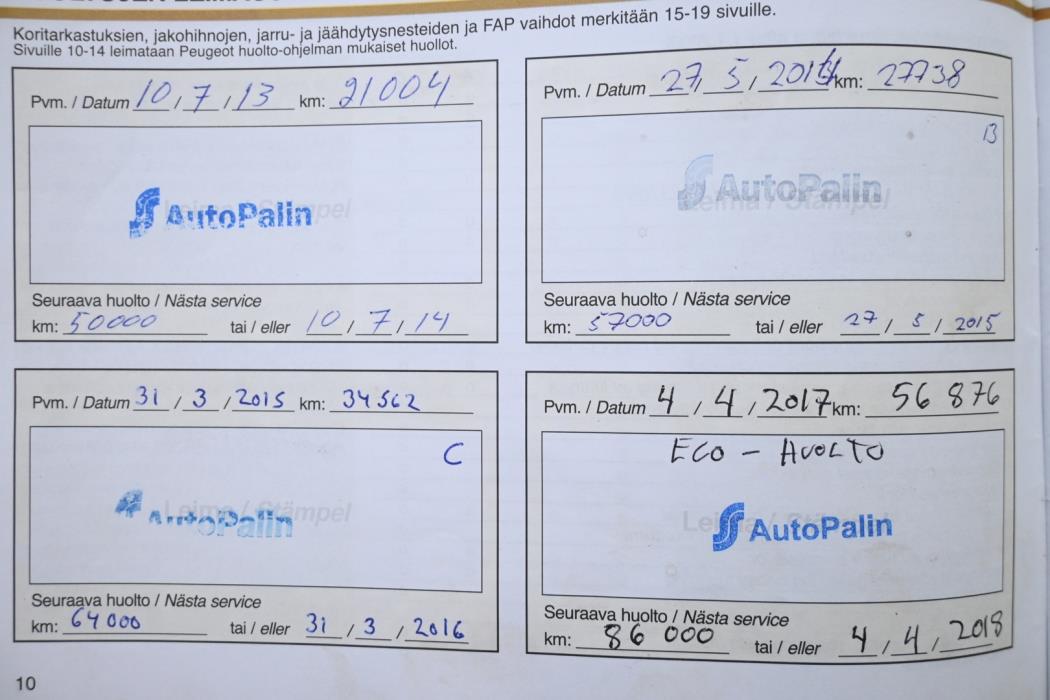 Koritarkastuksien, jakohihnojen, jarru- ja jäähdytysnesteiden ja FAP vaihdot merkitään 15-19 sivuille.
Sivuille 10-14 leimataan Peugeot huolto-ohjelman mukaiset huollot.
Pvm. / Datum 10 / 7 / 13 km: 21004
AutoPalin
Seuraava huolto / Nästa service
km: 50000 tai / eller 10 / 7 / 14
Pvm. / Datum 27 / 5 / 2014 km: 27738
B
AutoPalin
Leima / Stämpel
Seuraava huolto / Nästa service
km: 57000 tai / eller 27 / 5 / 2015
Pvm. / Datum 31 / 3 / 2015 km: 34562
C
Leima / Stämpel
AutoPalin
Seuraava huolto / Nästa service
km: 64000 tai / eller 31 / 3 / 2016
Pvm. / Datum 4 / 4 / 2017 km: 56 876
ECO - HUOLTO
AutoPalin
Seuraava huolto / Nästa service
km: 86 000 tai / eller 4 / 4 / 2018
10